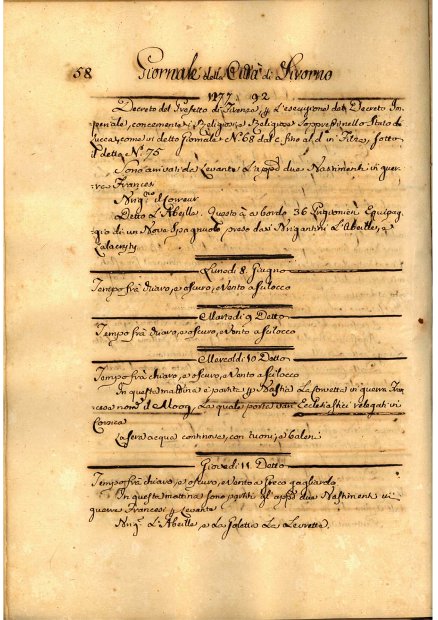 58 Giornale della Città di Livorno
Decreto del Prefetto di Firenze, p L'esecuzione del Decreto Im
periale, concernente i Religiosi e Religiose soppressi nello Stato di
Lucca, come vi detto Giornale N.° 68 dal
d.° detto N.° 75
Sono arrivati da Levante L'app.i due Bastimenti in guer
ra Francesi
Brig.no
Detto L'Abeille. Questo à a bordo 36 Prigionieri Equipag
gio di un Nove Spagnuolo preso dai Brigantini L'Abeille, e
Lunedì 8 Giugno
Tempo frà chiaro, e oscuro, e Vento a scilocco
Martedì 9 Detto
Tempo frà chiaro, e oscuro, e Vento a scilocco
Mercoldì 10 Detto
Tempo frà chiaro, e oscuro, e Vento a scilocco
In questa mattina è partita p Bastia La Corvetta in guerra Fran
cese nom.a La quale porta varj Ecclesiastici relegati in
Corsica
La sera acqua continova, con tuoni, e baleni
Giovedì 11 Detto
Tempo frà chiaro, e oscuro, e Vento a Greco gagliardo
In questa mattina sono partiti gl'app.i due Bastimenti in
guerra Francesi p Levante
Brig.o L'Abeille, e La Goletta La Levrette